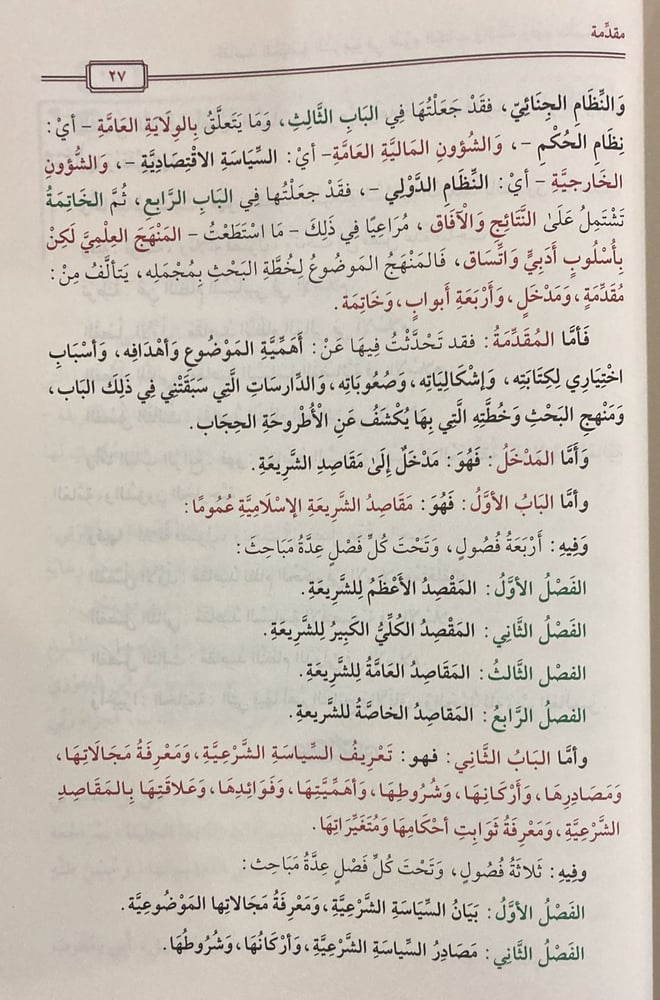 مقدِّمة
٢٧
وَالنِّظَامِ الجِنَائِيِّ، فقَدْ جَعَلْتُهَا فِي البَابِ الثَّالِثِ، وَمَا يَتَعلَّقُ بِالوِلَايَةِ العَامَّةِ - أيْ:
نِظَامِ الحُكْمِ -، وَالشُّؤونِ المَالِيَّةِ العَامَّةِ- أيْ: السِّيَاسَةِ الاقْتِصَادِيَّةِ -، وَالشُّؤُونِ
الخَارجِيَّةِ - أيْ: النِّظَامِ الدَّوْلِي -، فقَدْ جَعَلْتُها فِي البَابِ الرَّابِعِ، ثُمَّ الخَاتِمَةُ
تَشْتَمِلُ عَلَىٰ النَّتَائِجِ وَالْآفَاقِ، مُرَاعِيًا فِي ذَلِكَ - مَا اسْتَطَعْتُ - المَنْهَجَ العِلْمِيَّ لَكِنْ
بِأُسْلُوبٍ أَدَبِيٍّ وَاتِّسَاقٍ، فَالمَنْهَجُ المَوضُوعُ لِخُطَّةِ البَحْثِ بِمُجْمَلِه، يَتألَّفُ مِنْ:
مُقَدِّمَةٍ، وَمَدْخَلٍ، وَأَرْبَعَةِ أَبوابٍ، وَخَاتِمَة.
فَأمَّا المُقَدِّمَةُ: فقد تَحَدَّثْتُ فِيهَا عَنْ: أَهَمِّيَّةِ المَوْضُوعِ وَأهْدَافِه، وَأسْبَابِ
اخْتِيَارِي لِكِتَابَتِه، وَإشْكَالِيَاتِه، وَصُعُوبَاتِه، وَالدِّارسَاتِ الَّتِي سَبَقَتْنِي فِي ذَلِكَ البَاب،
وَمَنْهَجِ البَحْثِ وَخُطَّتِهِ الَّتِي بِهَا يُكْشَفُ عَنِ الْأُطْرُوحَةِ الحِجَاب.
وَأَمَّا المَدْخَلُ: فَهُوَ: مَدْخَلٌ إِلَىٰ مَقَاصِدِ الشَّرِيعَةِ.
وأمَّا البَابُ الأوَّلُ: فَهُوَ: مَقَاصِدُ الشَّرِيعَةِ الإسْلَامِيَّةِ عُمُومًا:
وَفِيهِ: أَرْبَعَةُ فُصُولٍ، وَتَحْتَ كُلِّ فَصْلٍ عِدَّةُ مَبَاحِثَ:
الفَصْلُ الأوَّلُ: المَقْصِدُ الأعْظَمُ لِلشَّرِيعَةِ.
الفَصْلُ الثَّانِي: المَقْصِدُ الكُلِّيُّ الكَبِيرُ لِلشَّرِيعَةِ.
الفصل الثَّالثُ: المَقَاصِدُ العَامَّةُ لِلشَّرِيعَةِ.
الفصلُ الرَّابعُ: المَقاصِدُ الخَاصَّةُ للشَّريعةِ.
وأمَّا البَابُ الثَّانِي: فهو: تَعْرِيفُ السِّيَاسَةِ الشَّرْعِيَّةِ، وَمَعْرِفَةُ مَجَالَاتِهَا،
وَمَصَادِرِهَا، وَأَرْكَانِهَا، وَشُرُوطِهَا، وَأهَمِّيَّتِهَا، وَفَوَائِدِهَا، وَعَلَاقَتِهَا بِالمَقَاصِدِ
الشَّرْعِيَّةِ، وَمَعْرِفَةُ ثَوَابِتِ أحْكَامِهَا وَمُتَغَيِّرَاتِهَا.
وفِيهِ: ثَلَاثَةُ فُصُولٍ، وَتَحْتَ كُلِّ فَصْلٍ عِدَّةُ مَبَاحِث:
الفَصْلُ الأوَّلُ: بَيَانُ السِّيَاسَةِ الشَّرْعِيَّةِ، وَمَعْرِفَةُ مَجَالَاتِها المَوْضُوعِيَّة.
الفَصْلُ الثَّانِي: مَصَادِرُ السِّيَاسَةِ الشَّرْعِيَّةِ، وَأرْكَانُهَا، وَشُرُوطُهَا.